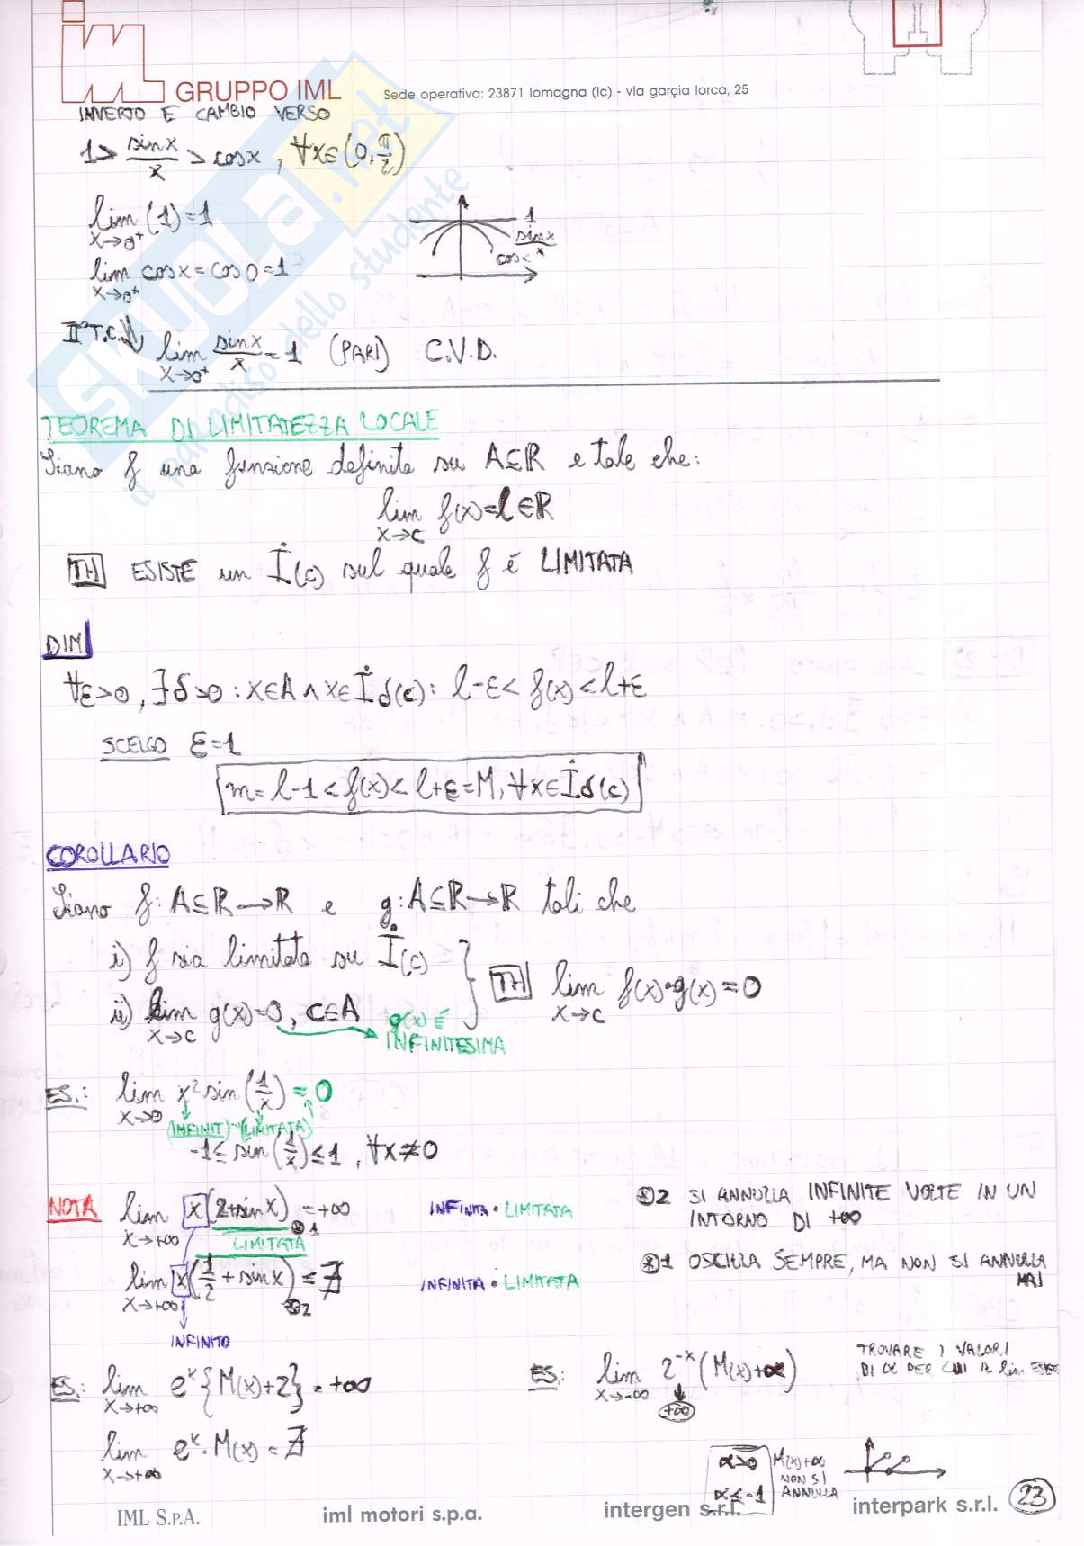 GRUPPO IML Sede operativa: 23871 lomagna (lc) - via garçia lorca, 25
INVERTO E CAMBIO VERSO
1 > sin x / x > cos x , ∀x∈(0, π/2)
lim x→0⁺ (1) = 1
1
sin x / x
cos x
lim x→0⁺ cos x = cos 0 = 1
II° T.C. ⇓ lim x→0⁺ sin x / x = 1 (PARI) C.V.D.
TEOREMA DI LIMITATEZZA LOCALE
Siano f una funzione definita su A⊆R e tale che:
lim x→c f(x) = l ∈ R
TH ESISTE un İ(c) sul quale f é LIMITATA
DIM
∀ε>0, ∃δ>0 : x∈A ∧ x∈İδ(c) : l-ε < f(x) < l+ε
SCELGO ε=1
m = l-1 < f(x) < l+ε = M, ∀x∈İδ(c)
COROLLARIO
Siano f: A⊆R→R e g: A⊆R→R tali che
i) f sia limitata su İ(c)
ii) lim x→c g(x) = 0, c∈A
TH lim x→c f(x)·g(x) = 0
g(x) É
INFINITESIMA
ES.: lim x→0 x² sin(1/x) = 0
(INFINIT)·(LIMITATA)
-1 ≤ sin(1/x) ≤ 1, ∀x≠0
NOTA lim x→+∞ x(2+sin x) = +∞ INFINITA · LIMITATA
⊛1
LIMITATA
lim x→+∞ x(1/2 + sin x) = ∄ INFINITA · LIMITATA
⊛2
INFINITO
⊛2 SI ANNULLA INFINITE VOLTE IN UN
INTORNO DI +∞
⊛1 OSCILLA SEMPRE, MA NON SI ANNULLA
MAI
ES.: lim x→+∞ eˣ{M(x)+2} = +∞
lim x→+∞ eˣ · M(x) = ∄
ES.: lim x→-∞ 2⁻ˣ (M(x)+α)
+∞
TROVARE I VALORI
DI α PER CUI IL lim ESISTE
α>0
α≤-1
M(x)+α
NON SI
ANNULLA
IML S.p.A. iml motori s.p.a. intergen s.r.l. interpark s.r.l. 23
skuola.net
il paradiso dello studente